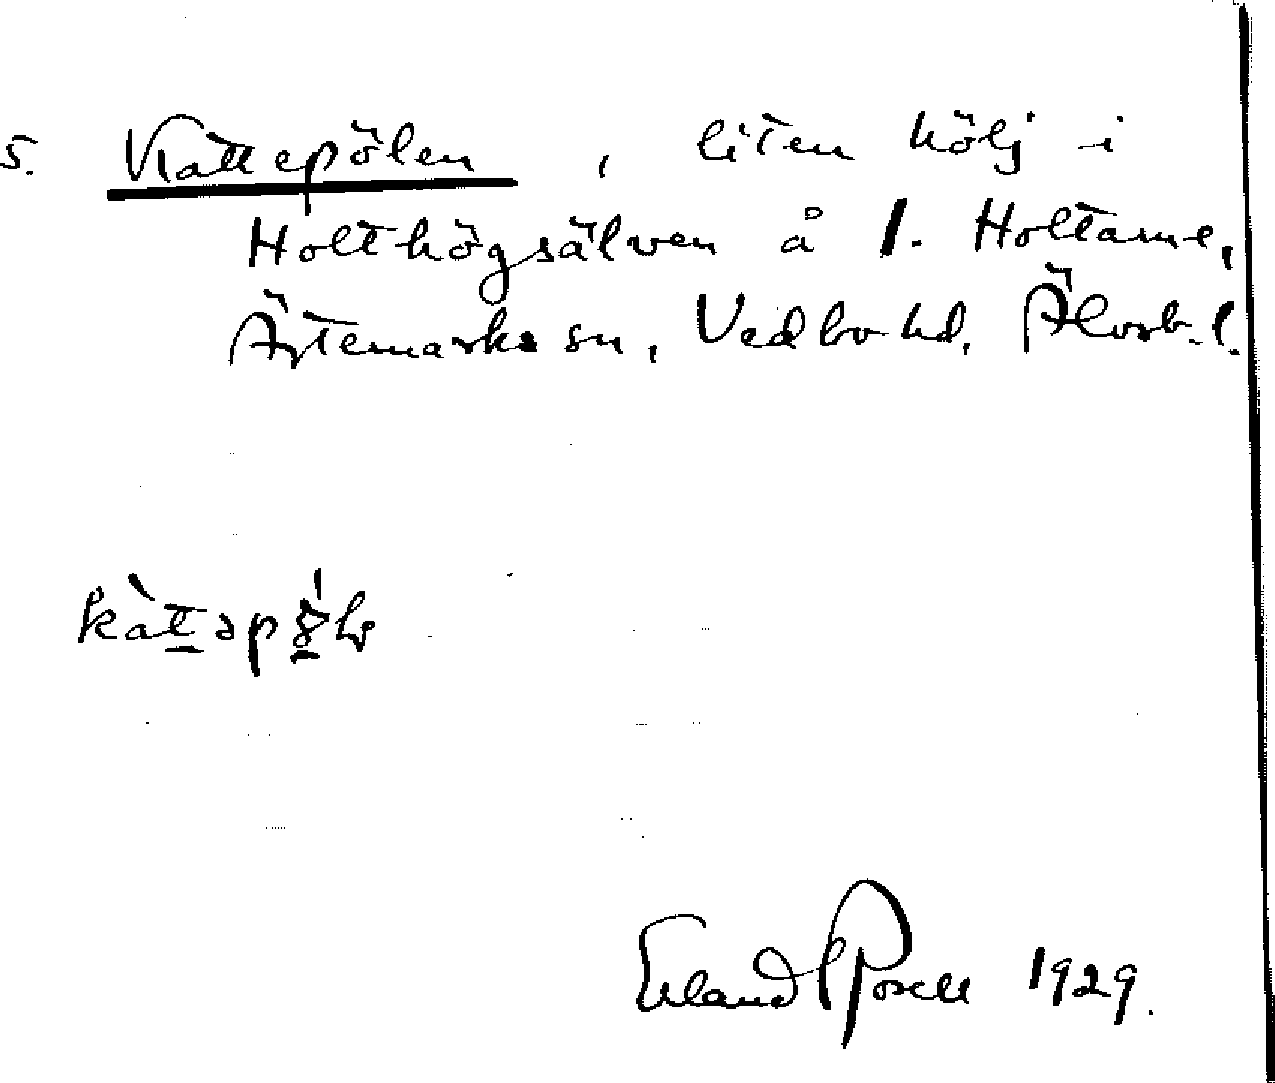 5. Kattepölen, liten hölj i
Holthögsälven å 1. Holtarne,
Ärtemarks sn, Vedbo hd, Älvsb. l.
Erland Rosell 1929.